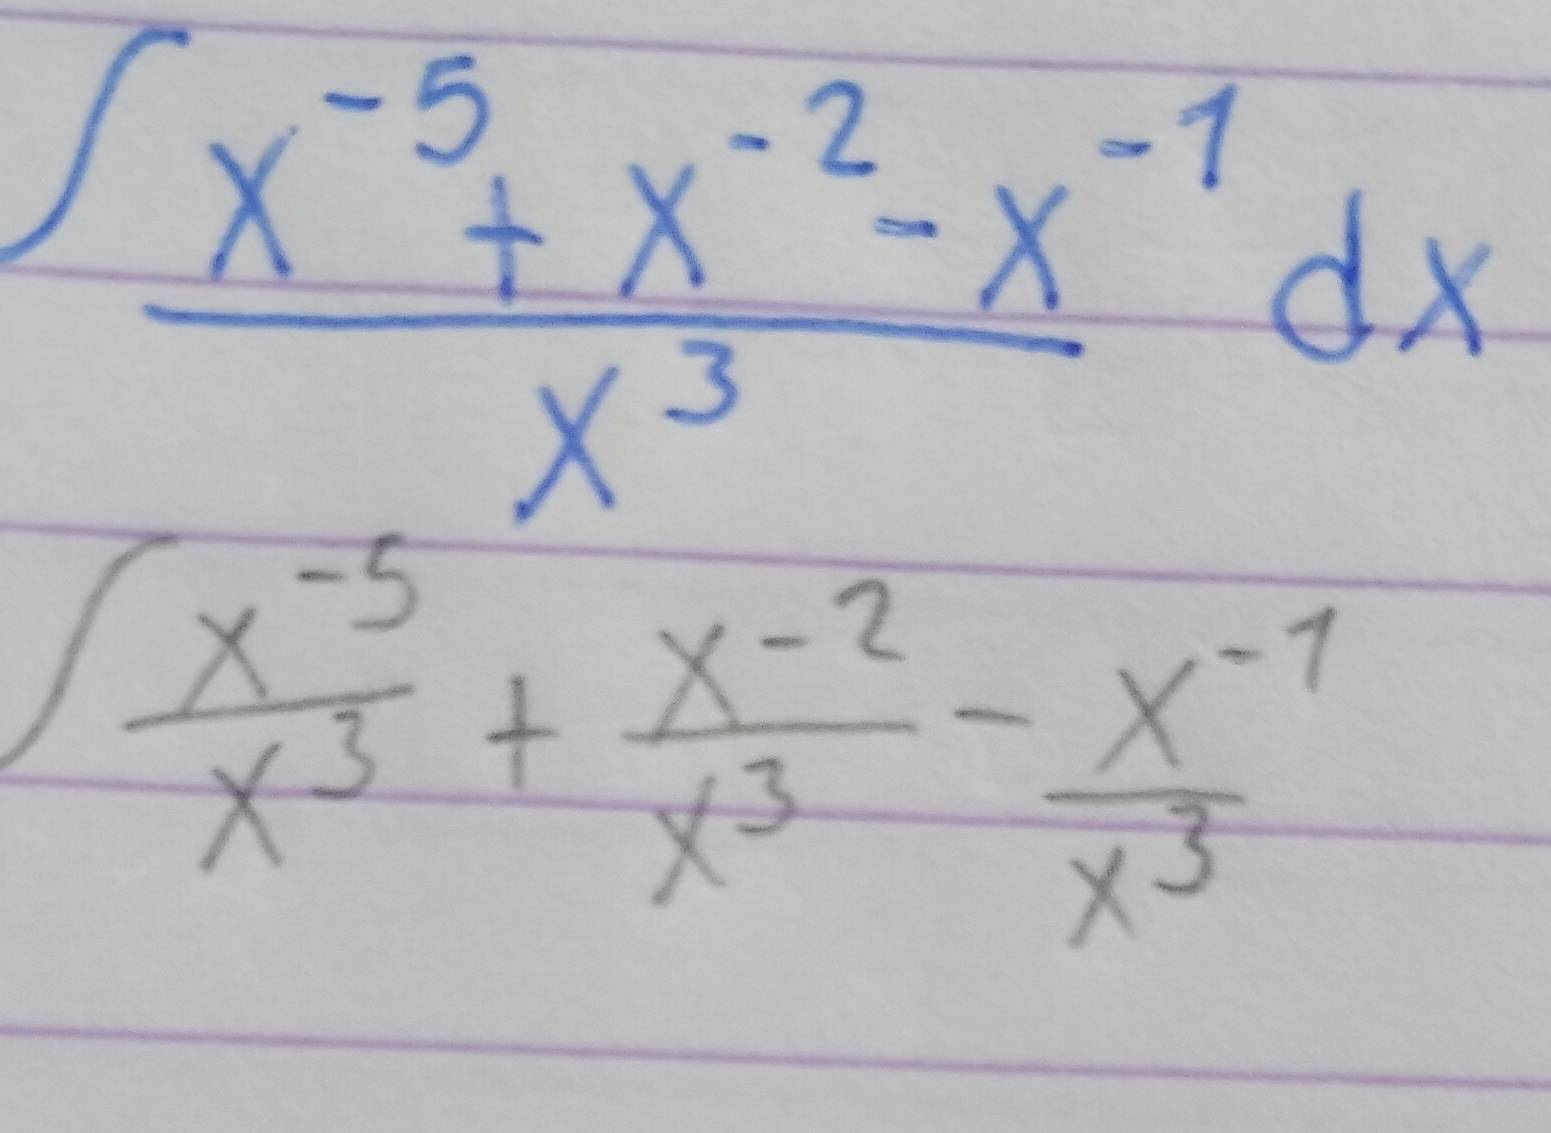 ∫ (x⁻⁵ + x⁻² - x⁻¹)/x³ dx
∫ x⁻⁵/x³ + x⁻²/x³ - x⁻¹/x³